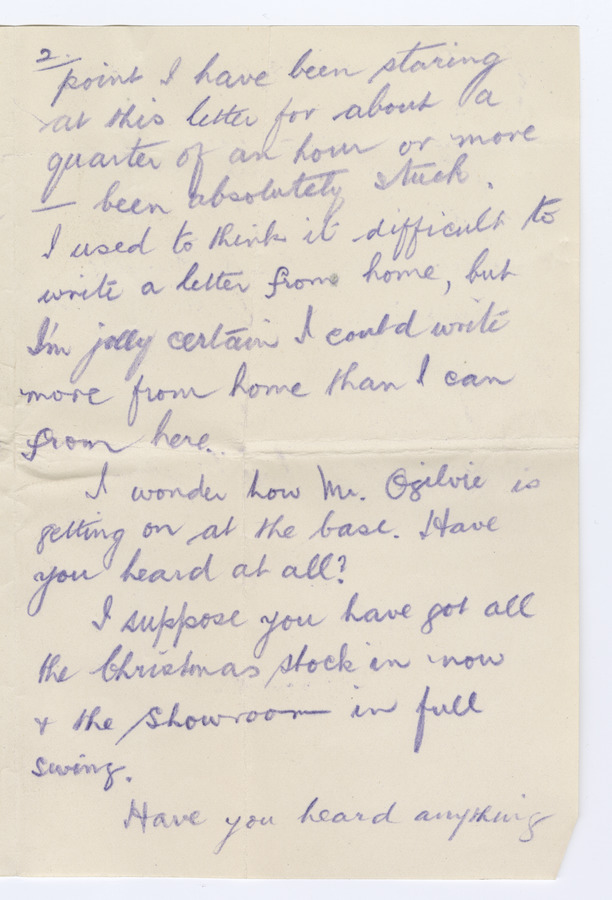 2.
point I have been staring
at this letter for about a
quarter of an hour or more
— been absolutely stuck.
I used to think it difficult to
write a letter from home, but
I'm jolly certain I could write
more from home than I can
from here.
I wonder how Mr. Ogilvie is
getting on at the base. Have
you heard at all?
I suppose you have got all
the Christmas stock in now
& the showroom in full
swing.
Have you heard anything